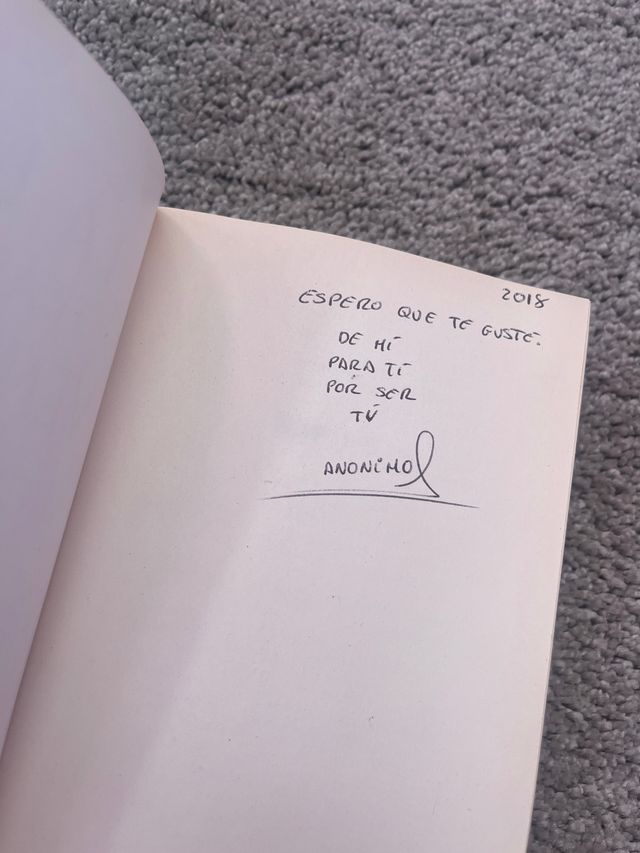 2018
ESPERO QUE TE GUSTE.
DE MÍ
PARA TÍ
POR SER
TÚ
ANONIMO